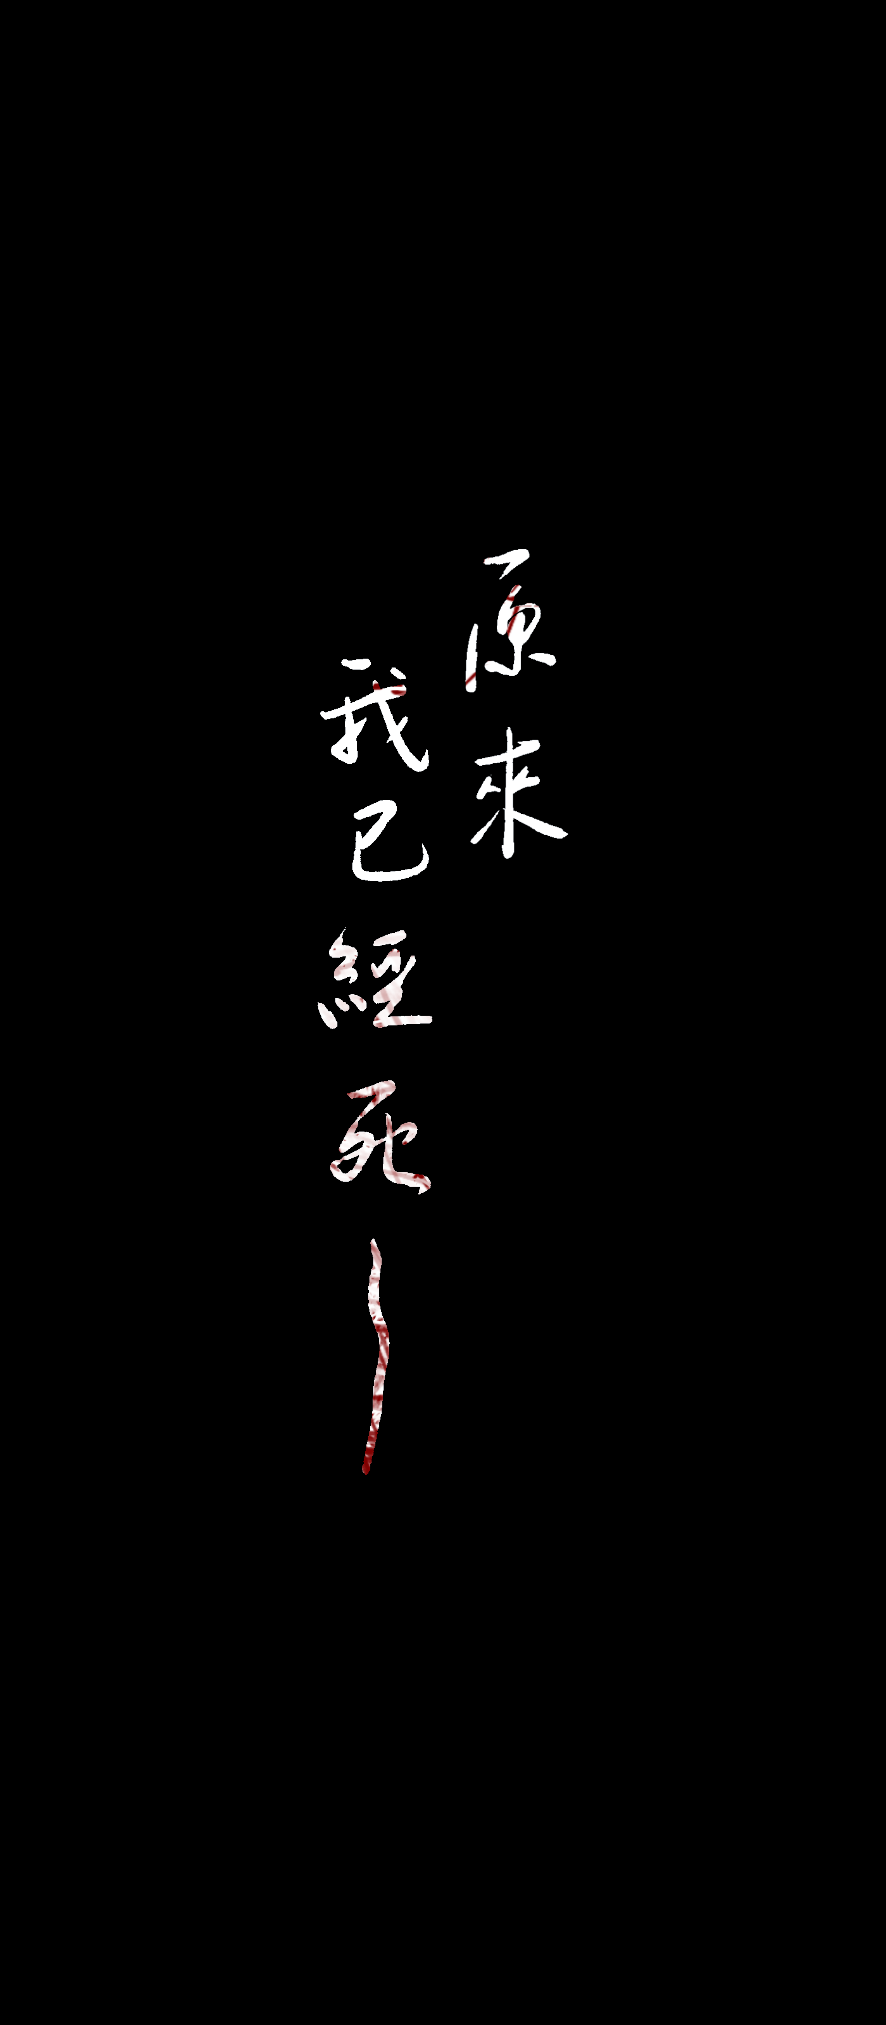 原來
我已經死